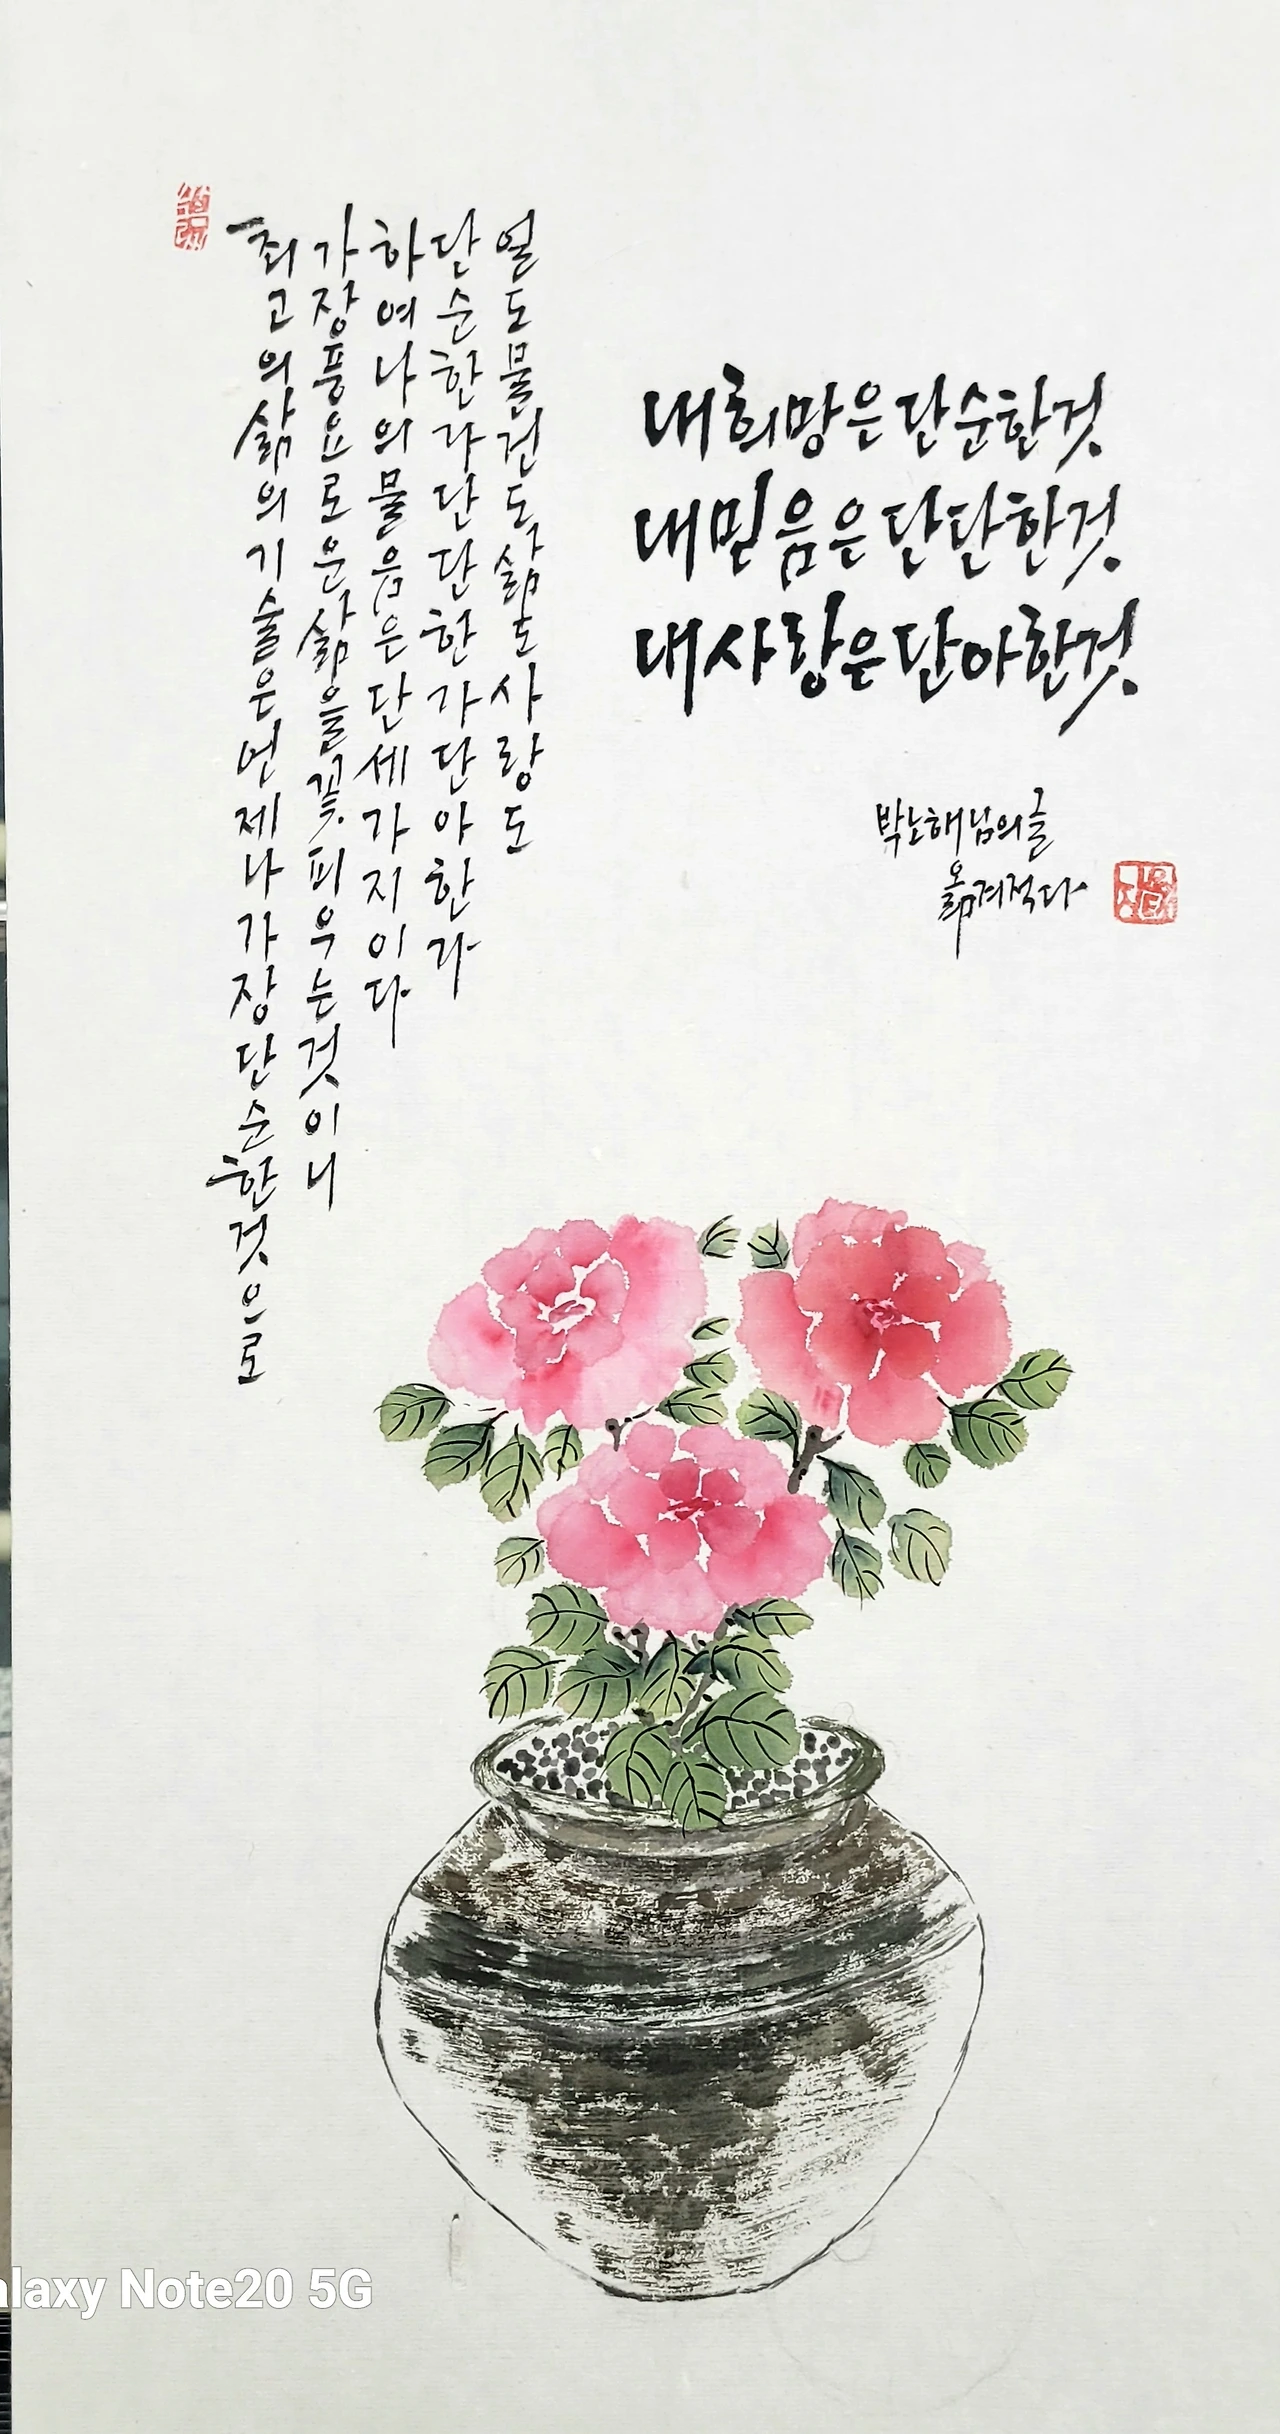 최고의 삶의 기술은 언제나 가장 단순한 것으로
가장 풍요로운 삶을 꽃 피우는 것이니
하여 나의 물음은 단 세가지이다
단순한가 단단한가 단아한가
일도 물건도 삶도 사랑도
내 희망은 단순한 것
내 믿음은 단단한 것
내 사랑은 단아한 것
박노해님의 글
옮겨적다
alaxy Note20 5G